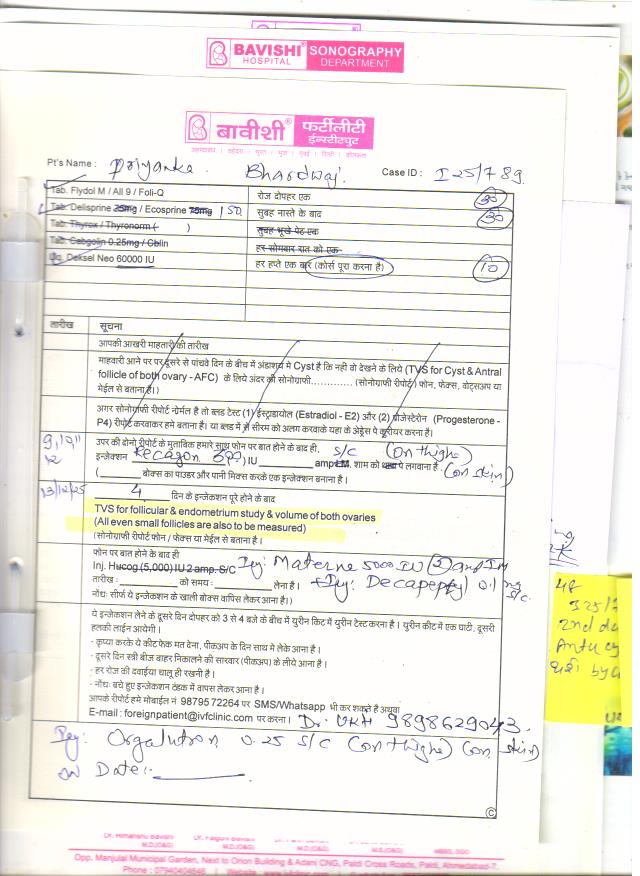 BAVISHI® SONOGRAPHY
HOSPITAL DEPARTMENT
बावीशी® फर्टीलीटी
ईन्स्टीट्युट
Pt's Name : Priyanka Bhardwaj. Case ID : I 25/789
Tab. Flydol M / All 9 / Foli-Q रोज दोपहर एक 30
Tab. Delisprine 25mg / Ecosprine 75mg 150 सुबह नास्ते के बाद 30
Tab. Thyrox / Thyronorm ( ) सुबह भूखे पेट एक
Tab. Cabgolin 0.25mg / Cblin हर सोमबार रात को एक
Deksel Neo 60000 IU हर हप्ते एक बार (कोर्स पूरा करना है) 10
तारीख सूचना
आपकी आखरी माहतारी की तारीख
माहवारी आने पर पर दूसरे से पांचवे दिन के बीच में अंडाशय मे Cyst है कि नही वो देखने के लिये (TVS for Cyst & Antral
follicle of both ovary - AFC) के लिये अंदर की सोनोग्राफी............. (सोनोग्राफी रीपोर्ट) फोन, फेक्स, वोट्सअप या
मेईल से बताना है।)
अगर सोनोग्राफी रीपोर्ट नोर्मल है तो ब्लड टेस्ट (1) ईस्ट्राडायोल (Estradiol - E2) और (2) प्रोजेस्टेरोन (Progesterone -
P4) रीपोर्ट करवाकर हमे बताना है। या ब्लड में से सीरम को अलग करवाके यहा के अेड्रेस पे कुरीयर करना है।
9,10,11
12 उपर की दोनो रीपोर्ट के मुताबिक हमारे साथ फोन पर बात होने के बाद ही, S/C (on thighe)
इन्जेक्शन Recagon 300 IU amp IM. शाम को पे लगवाना है. (on skin)
( बोक्स का पाउडर और पानी मिक्स करके एक इन्जेक्शन बनाना है।
13/12/25 4 दिन के इन्जेक्शन पूरे होने के बाद
TVS for follicular & endometrium study & volume of both ovaries
(All even small follicles are also to be measured)
(सोनोग्राफी रीपोर्ट फोन / फेक्स या मेईल से बताना है.
फोन पर बात होने के बाद ही
Inj. Hucog (5,000) IU 2 amp. S/C Inj: Materne 5000 IU 2 and IM
तारीख : को समय : लेना है। + Inj: Decapeptyl 0.1 mg S/C.
नोंधः सीर्फ ये इन्जेक्शन के खाली बोक्स वापिस लेकर आना है।)
ये इन्जेक्शन लेने के दूसरे दिन दोपहर को 3 से 4 बजे के बीच में युरीन किट में युरीन टेस्ट करना है। युरीन कीट में एक घाटी, दूसरी
हलकी लाईन आयेगी।
- कृप्या करके ये कीट फेक मत देना, पीकअप के दिन साथ मे लेके आना है।
- दूसरे दिन स्त्री बीज बाहर निकालने की सारवार (पीकअप) के लीये आना है।
- हर रोज की दवाईया चालू ही रखनी है।
- नोंधः बचे हुए इन्जेक्शन ठंडक में वापस लेकर आना है।
आपके रीपोर्ट हमे मोबाईल नं 9879572264 पर SMS/Whatsapp भी कर शकते है अथवा
E-mail : foreignpatient@ivfclinic.com पर करना। Dr. UKH 9898629043.
Orgalutron 0.25 S/C (on thighe) (on skin)
Date:-
©
48
I 25/7
2nd
Opp. Manjulal Municipal Garden, Next to Orion Building & Adani CNG, Paldi Cross Roads, Paldi, Ahmedabad-7.